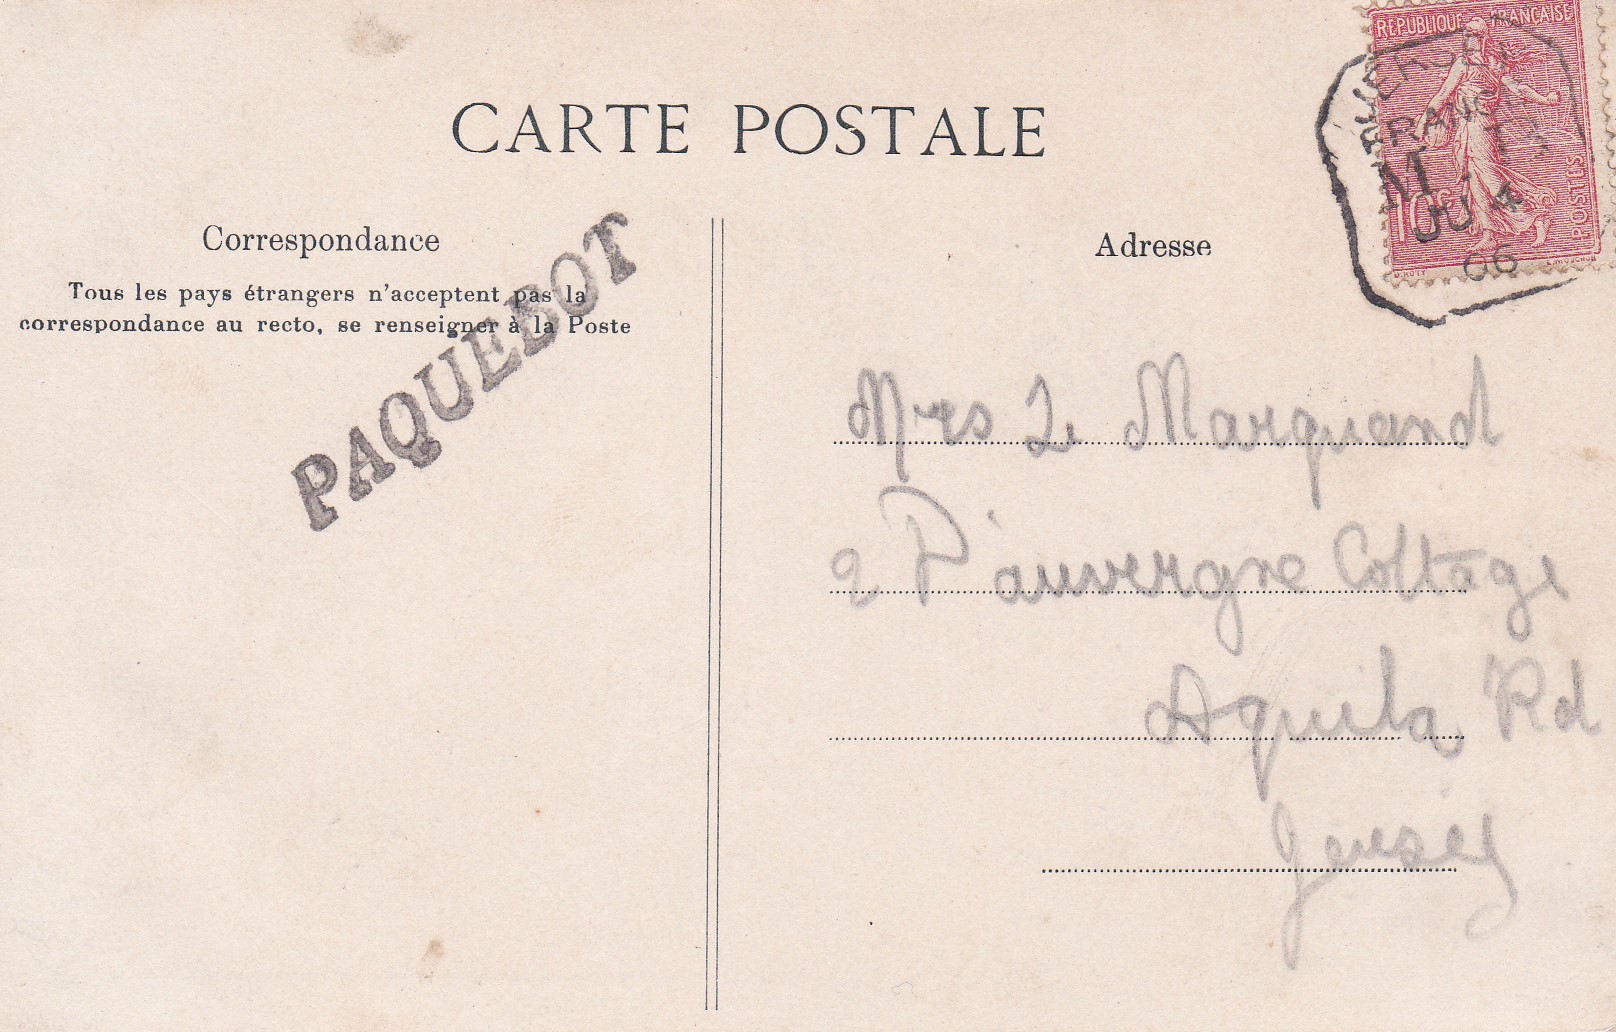 CARTE POSTALE
Correspondance
Tous les pays étrangers n'acceptent pas la
correspondance au recto, se renseigner à la Poste
PAQUEBOT
Adresse
REPUBLIQUE FRANÇAISE
10c
POSTES
O.ROTY
M
JU 4
06
Mrs Le Marquand
2 D'auvergne Cottage
Aquila Rd
Jersey